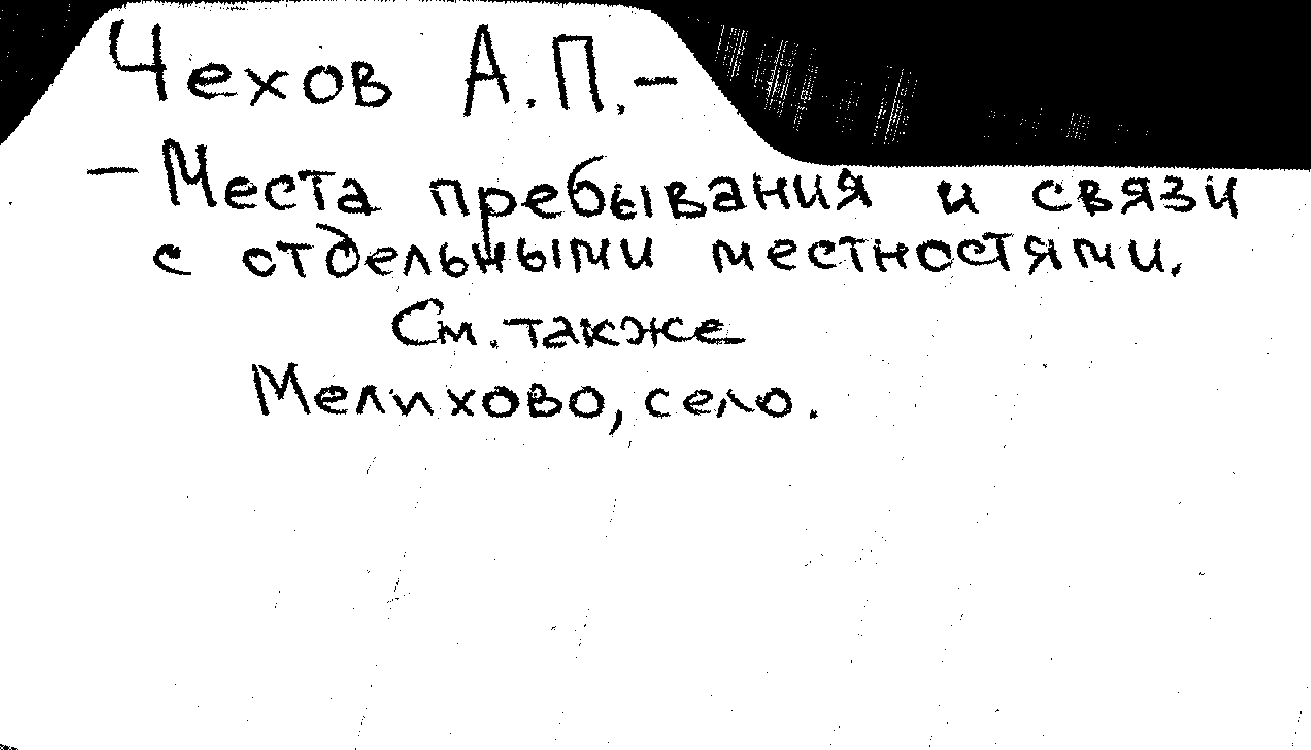 Чехов А.П.–
– Места пребывания и связи
с отдельными местностями.
См. также
Мелихово, село.